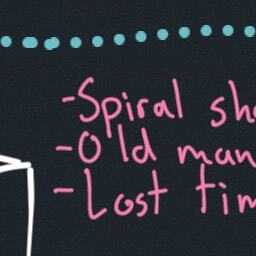 -Spiral sh
-Old man
-Lost tim